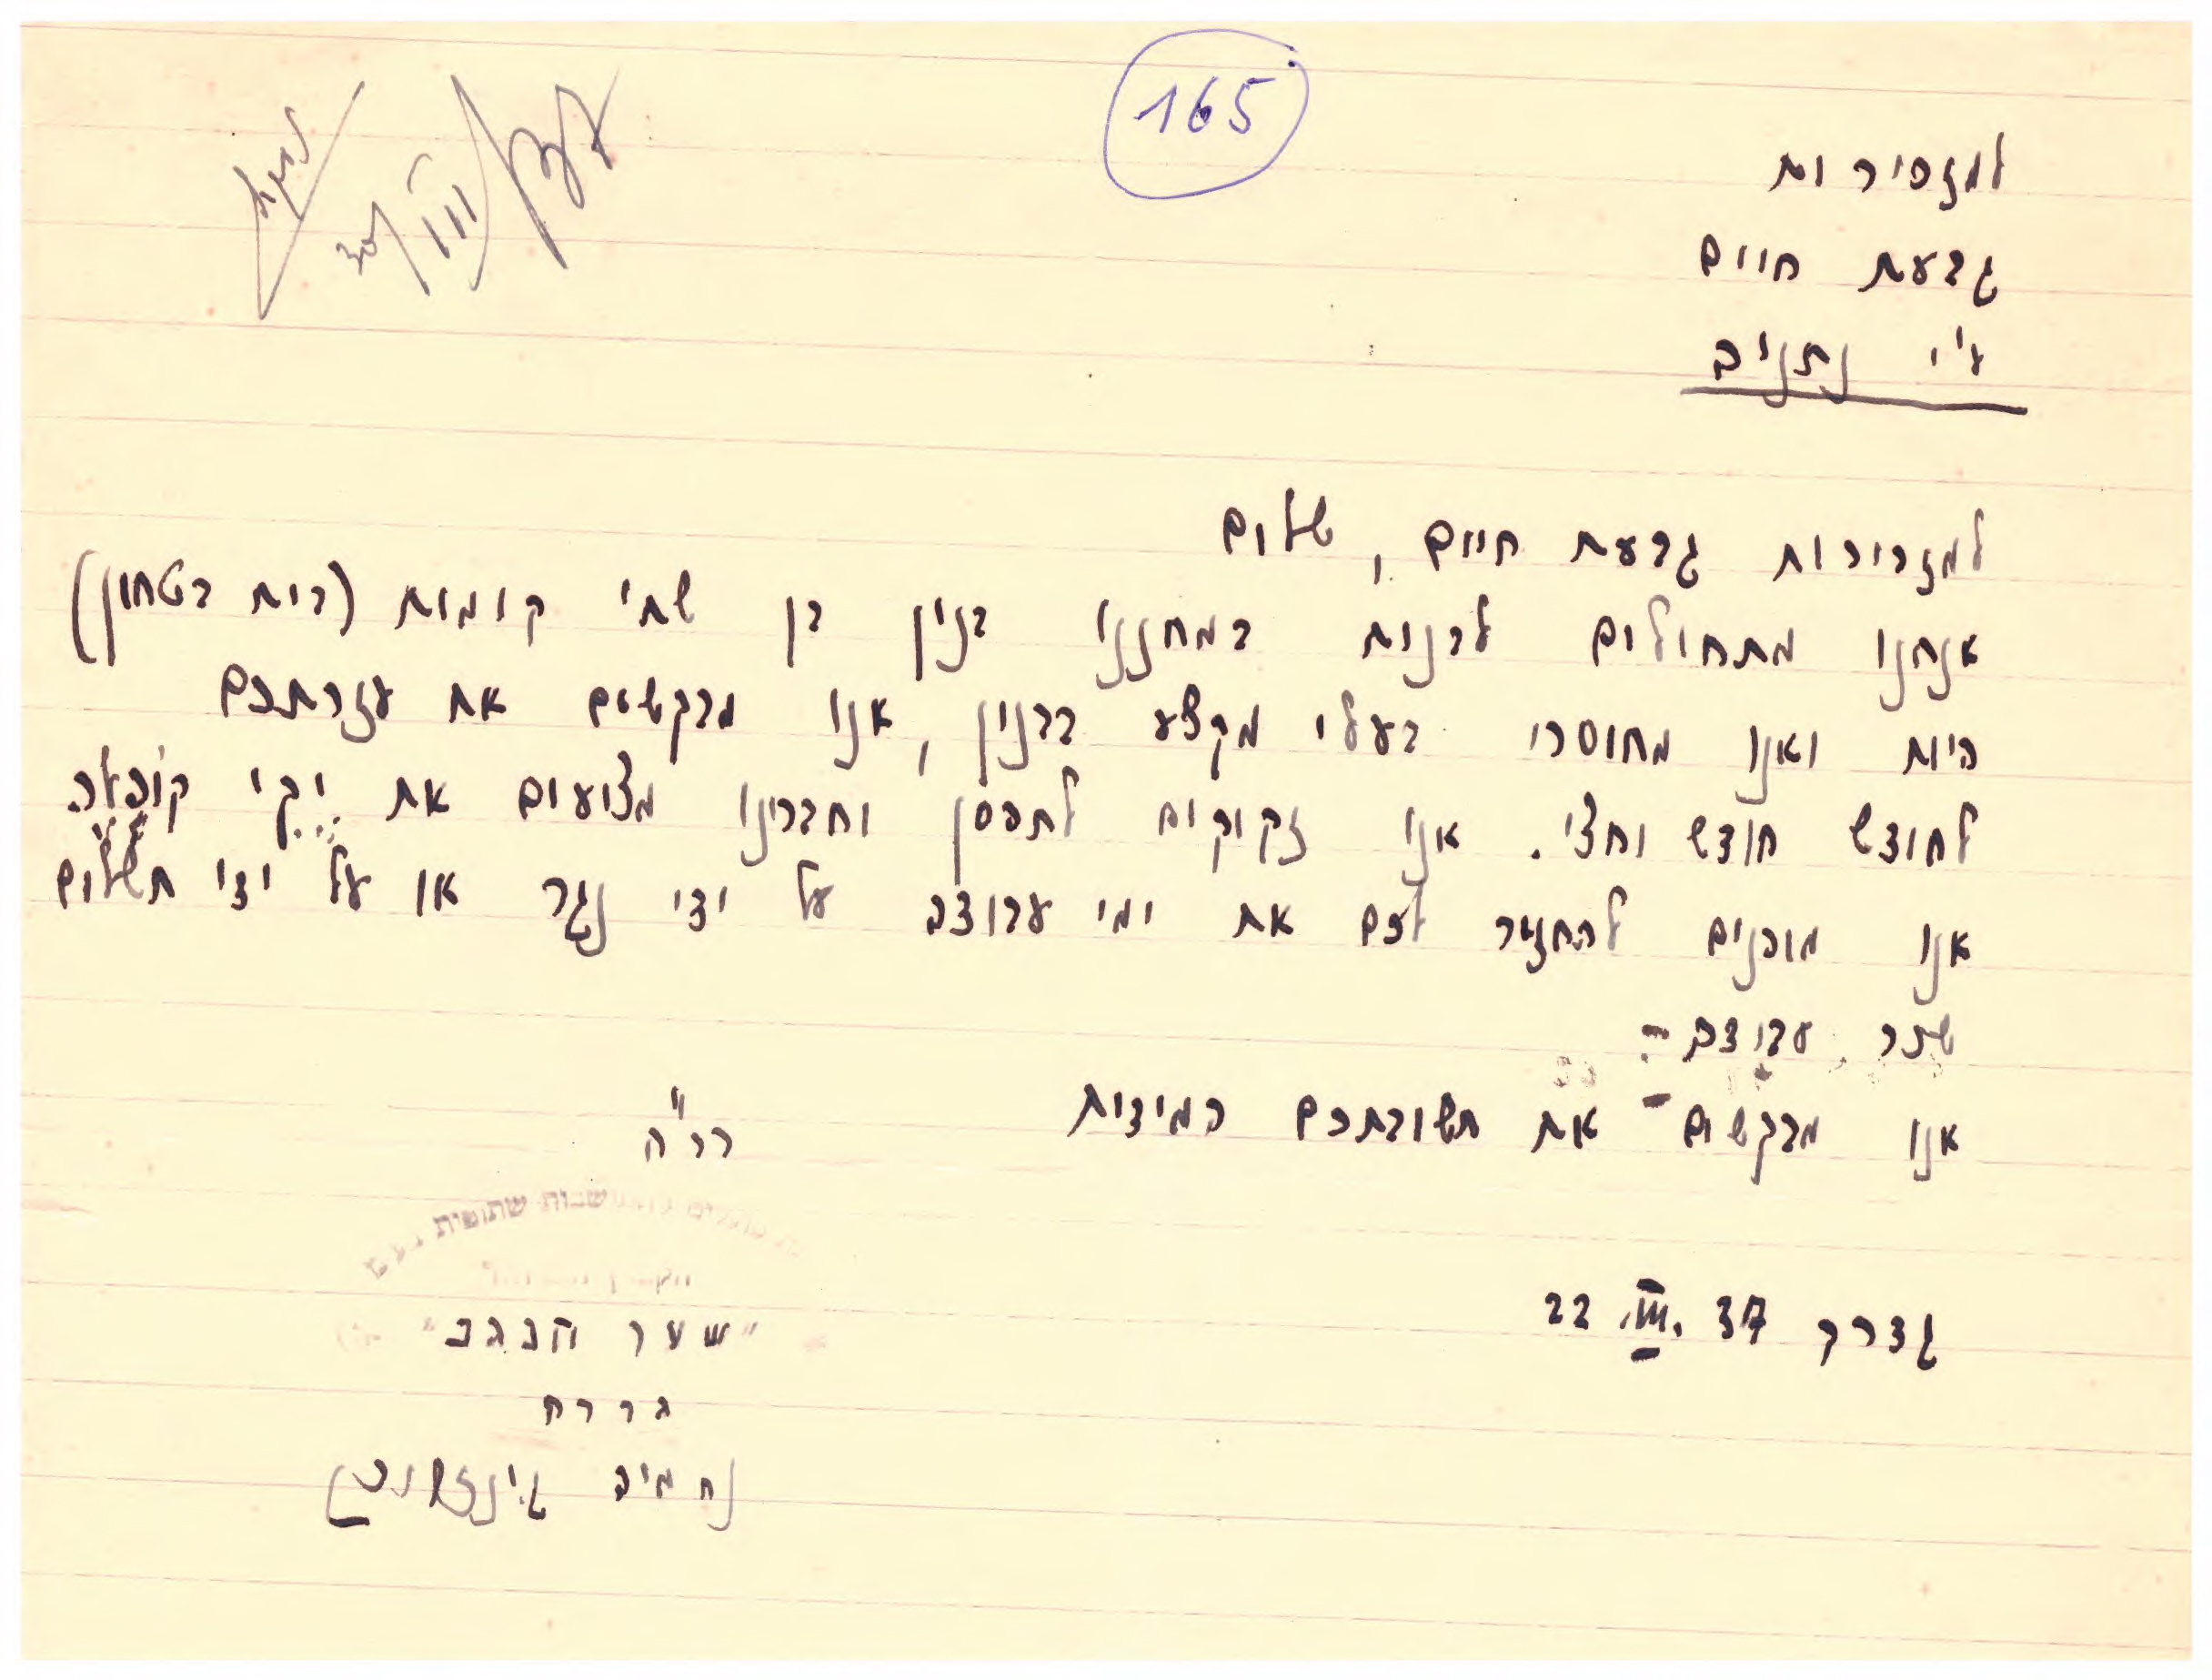 165
למזכירות
גבעת חיים
ע"י נתניה
למזכירות גבעת חיים, שלום
אנחנו מתחילים לבנות במחננו בנין בן שתי קומות (בית בטחון)
היות ואנו מחוסרי בעלי מקצע בבנין, אנו מבקשים את עזרתכם
לחודש חודש וחצי. אנו זקוקים לתפסן וחברינו מציעים את
אנו מוכנים להחזיר לכם את ימי עבודה על ידי נגר או על ידי תשלום
שכר עבודה -
אנו מבקשים את תשובתכם המידית
בב"ח
"שער הנגב"
גדרה
נחמיה גינזבורג
גדרה 22.III.37